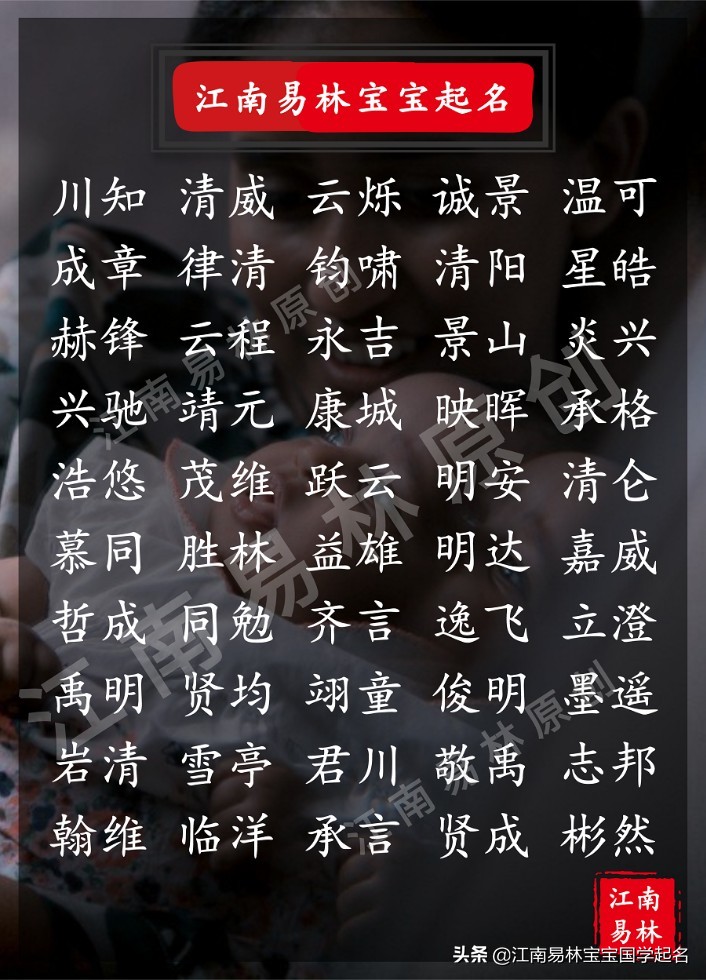 江南易林宝宝起名
川知 清威 云烁 诚景 温可
成章 律清 钧啸 清阳 星皓
赫锋 云程 永吉 景山 炎兴
兴驰 靖元 康城 映晖 承格
浩悠 茂维 跃云 明安 清仑
慕同 胜林 益雄 明达 嘉威
哲成 同勉 齐言 逸飞 立澄
禹明 贤均 翊童 俊明 墨遥
岩清 雪亭 君川 敬禹 志邦
翰维 临洋 承言 贤成 彬然
江南易林原创
江南易林原创
江南易林原创
江南
易林
头条 @江南易林宝宝国学起名